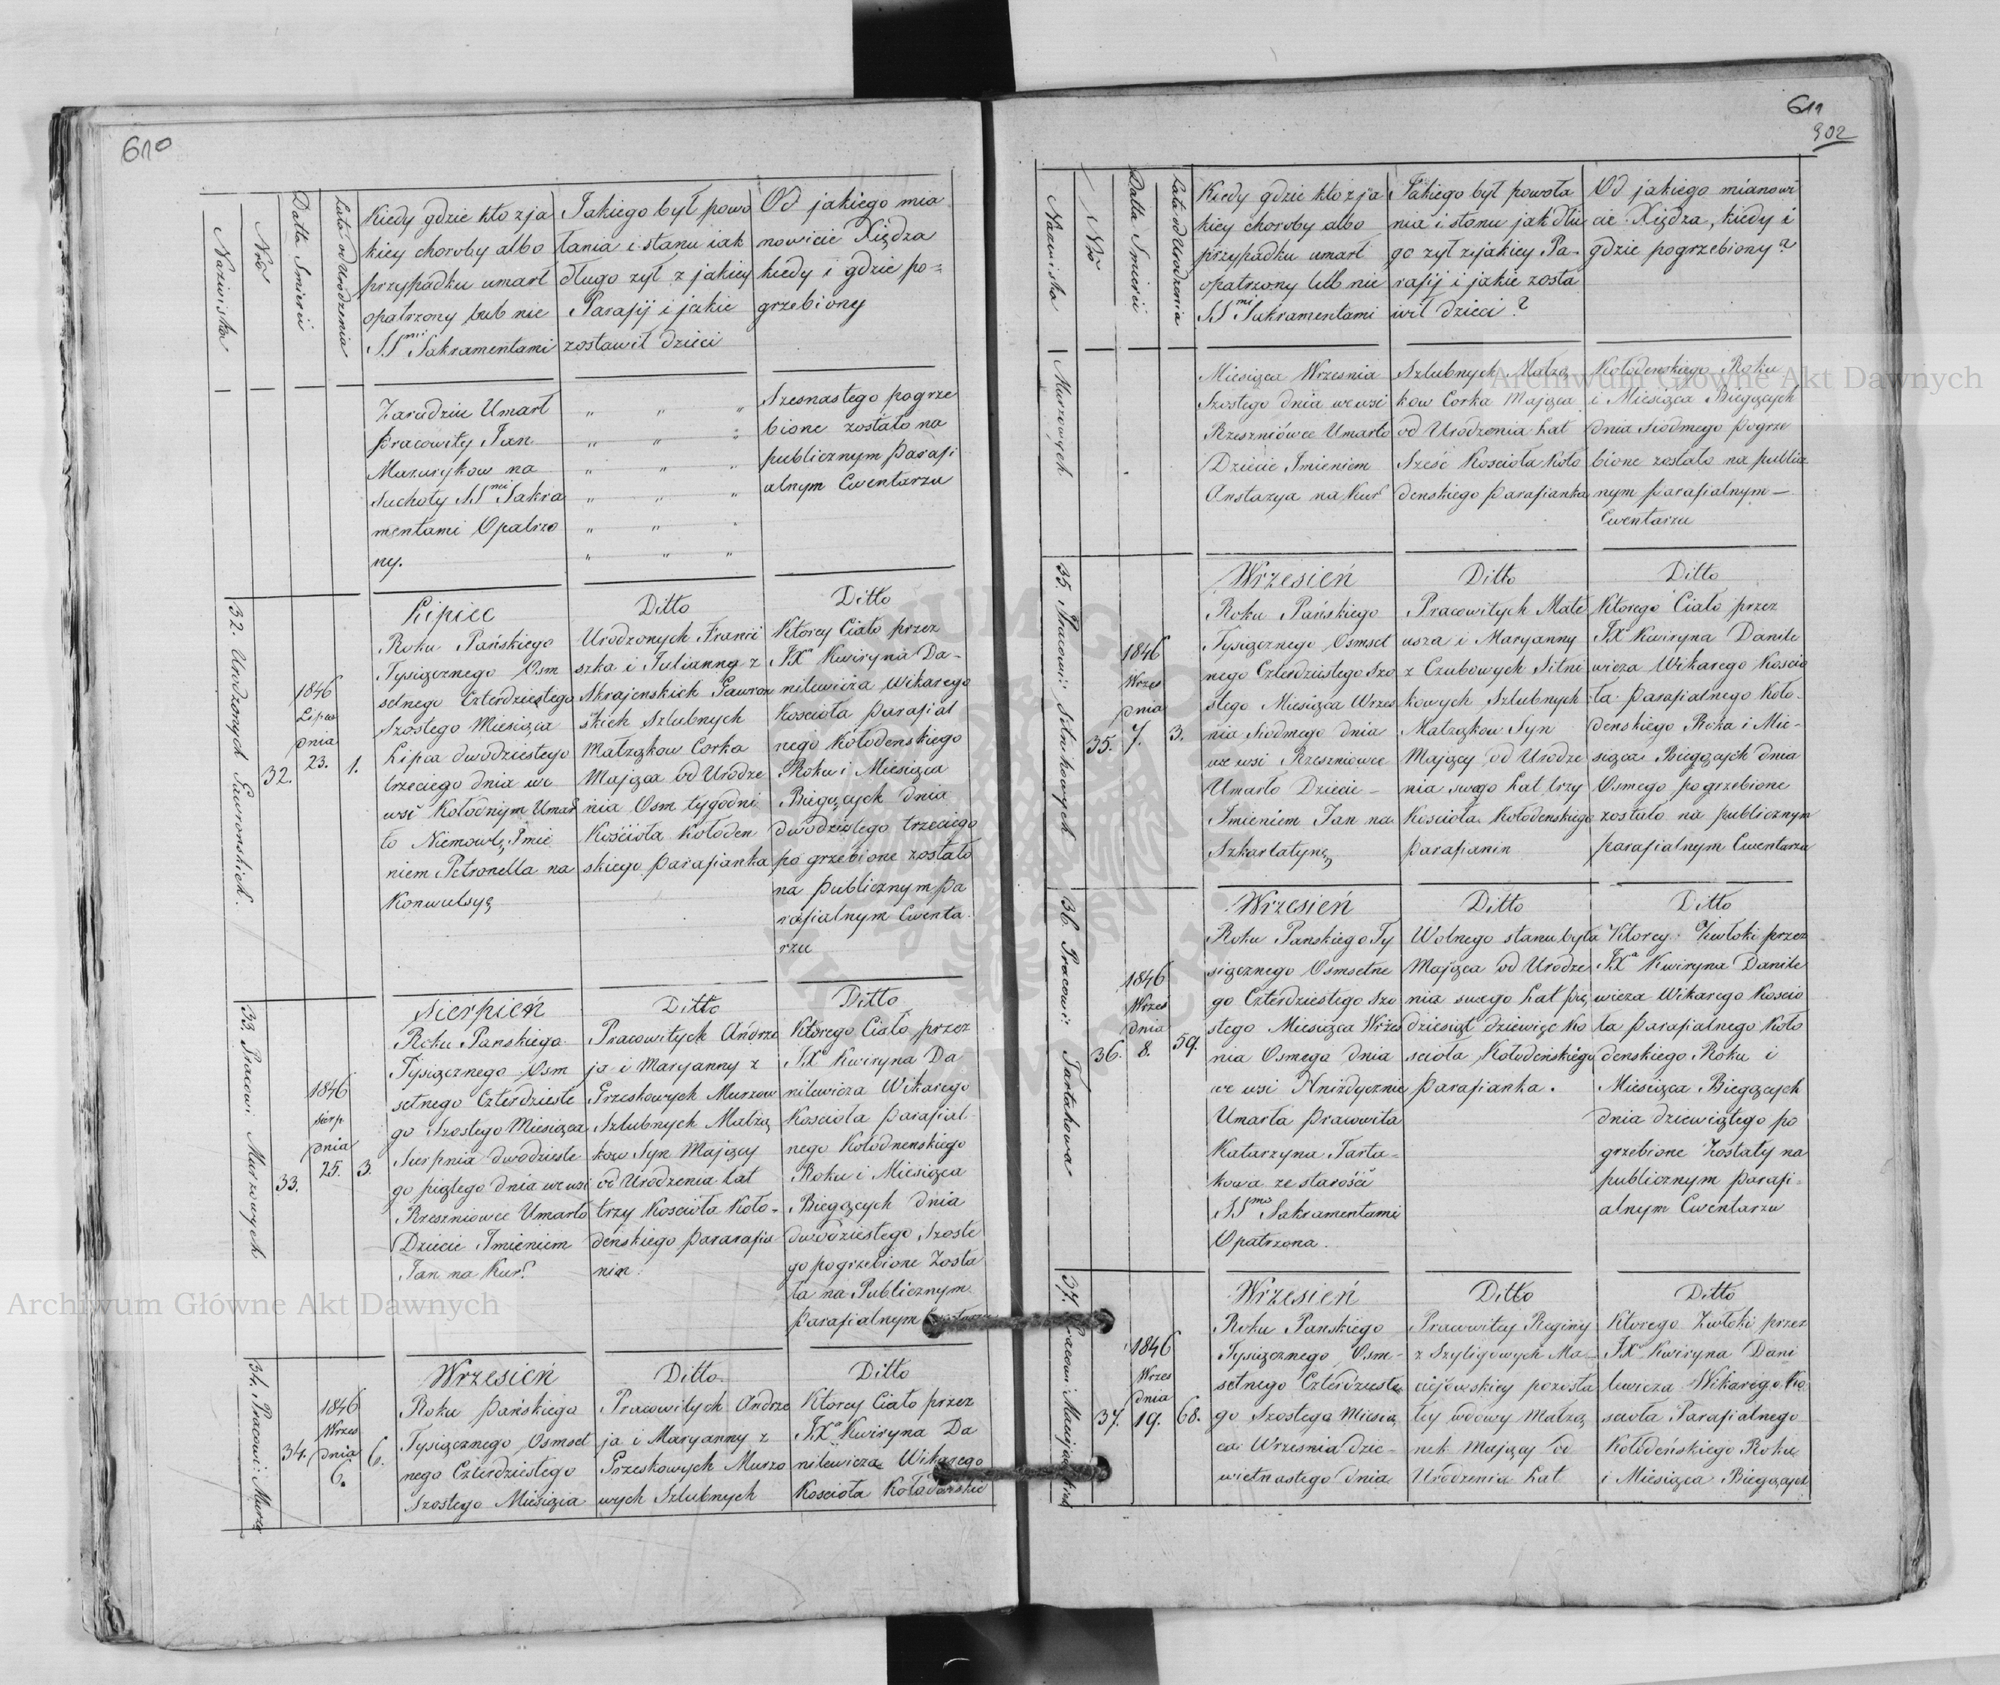 610
Nazwiska
Nro
Datta Smierci
Lata od Urodzenia
Kiedy gdzie kto z ja
kiey choroby albo
przypadku umarł
opatrzony lub nie
SSmi Sakramentami
Jakiego był powo
łania i stanu iak
długo zył z jakiey
Parafij i jakie
zostawił dzieci
Od jakiego mia
nowicie Xiędza
kiedy i gdzie po=
grzebiony
Zaradziu Umarł
pracowity Jan
Mazurykow na
Suchoty SSmi Sakra
mentami Opatrzo
ny.
Szesnastego pogrze
bione zostało na
publicznym parafi
alnym Cwentarzu
32. Urodzonych Gawronskich.
32.
1846
Lipca
dnia
23.
1.
Lipiec
Roku Pańskiego
Tysiącznego Osm
setnego Czterdziestego
Szostego Miesiąca
Lipca dwodziestego
trzeciego dnia we
wsi Kołodnym Umar
ło Niemowle Imie
niem Petronella na
Konwulsyą
Ditto
Urodzonych Franci
szka i Julianny z
Skrajenskich Gawron
skich Szlubnych
Małząkow Corka
Mająca od Urodze
nia Osm tygodni
Kościoła Kołoden
skiego parafianka
Ditto
Ktorey Ciało przez
JXa Kwiryna Da-
nilewicza Wikarego
Kościoła parafial
nego Kołodenskiego
Roku i Miesiąca
Biegących dnia
dwodziestego trzeciego
pogrzebione zostało
na publicznym pa
rafialnym Cwenta
rzu
33. Pracowi: Murzowych
33.
1846
sierp.
dnia
25.
3.
Sierpień
Roku Panskiego
Tysiącznego Osm
setnego Czterdzieste
go Szostego Miesiąca
Sierpnia dwodzieste
go piątego dnia we wsi
Rzeszniowce Umarło
Dziecie Imieniem
Jan na Kur?
Ditto
Pracowitych Andrze
ja i Maryanny z
Grzeskowych Murzow
Szlubnych Małzą
kow Syn Mający
od Urodzenia Lat
trzy Kościoła Koło-
denskiego pararafia
nin
Ditto
Ktorego Ciało przez
JXa Kwiryna Da
nilewicza Wikarego
Kościoła parafial
nego Kołodnenskiego
Roku i Miesiąca
Biegących dnia
dwódziestego Szoste
go pogrzebione Zosta
ła na Publicznym
parafialnym
34. Pracowi: Murzo
34.
1846
Wrześ
dnia
6.
6.
Wrzesień
Roku pańskiego
Tysiącznego Osmset
nego Czterdziestego
Szostego Miesiąca
Ditto
Pracowitych Andrze
ja i Maryanny z
Grzeskowych Murzo
wych Szlubnych
Ditto
Ktorey Ciało przez
JXa Kwiryna Da
nilewicza Wikarego
Kościoła Kołodenskie
611
902
Nazwiska
Nro
Datta Smierci
Lata od Urodzenia
Kiedy gdzie kto z ja
kiey choroby albo
przypadku umarł
opatrzony lub nie
SSmi Sakramentami
Jakiego był powoła
nia i stanu jak dłu
go zył z jakiey Pa-
rafij i jakie zosta
wił dzieci?
Od jakiego mianowi
cie Xiędza, kiedy i
gdzie pogrzebiony?
Murzowych
Miesiąca Wrzesnia
Szostego dnia we wsi
Rzeszniówce Umarło
Dziecie Imieniem
Anstazya na Kur?
Szlubnych Małzą
kow Corka Mająca
od Urodzenia Lat
Sześć Kościoła Koło
denskiego parafianka
Kołodenskiego Roku
i Miesiąca Biegących
dnia Siodmego pogrze
bione zostało na publicz
nym parafialnym
Cwentarzu
35. Pracowi: Sitnikowych
35.
1846
Wrześ
dnia
7.
3.
Wrzesień
Roku Pańskiego
Tysiącznego Osmset
nego Czterdziestego Szo
stego Miesiąca Wrześ
nia Siodmego dnia
we wsi Rzeszniowce
Umarło Dziecie -
Imieniem Jan na
Szkarlatynę
Ditto
Pracowitych Mate
usza i Maryanny
z Czubowych Sitni
kowych Szlubnych
Małząkow Syn
Mający od Urodze
nia swego Lat trzy
Kościoła Kołodenskiego
parafianin
Ditto
Ktorego Ciało przez
JXa Kwiryna Danile
wicza Wikarego Koscio
ła parafialnego Koło-
denskiego Roku i Mie-
siąca Biegących dnia
Osmego pogrzebione
zostało na publicznym
parafialnym Cwentarzu
36. Pracowi: Tartakowa
36.
1846
Wrześ
dnia
8.
59.
Wrzesień
Roku Panskiego Ty
siącznego Osmsetne
go Czterdziestego Szo
stego Miesiąca Wrześ
nia Osmego dnia
we wsi Hnizdycznie
Umarła pracowita
Katarzyna Tarta-
kowa ze starości
SSmi Sakramentami
Opatrzona.
Ditto
Wolnego stanu była
Mająca od Urodze
nia swego Lat pię
dziesiąt dziewięc Ko
scioła Kołodeńskiego
parafianka.
Ditto
Ktorey Zwłoki przez
JXa Kwiryna Danile
wicza Wikarego Koscio
ła parafialnego Koło
denskiego Roku i
Miesiąca Biegących
dnia dziewiątego po
grzebione Zostały na
publicznym parafi=
alnym Cwentarzu
37.
37.
1846
Wrześ
dnia
19.
68.
Wrzesień
Roku Panskiego
Tysiącznego Osm-
setnego Czterdzieste
go Szostego Miesią
ca Wrzesnia dzie-
wietnastego dnia
Ditto
Pracowitey Reginy
z Szyligowych Ma-
ciejowskiey pozosta
łey wdowy Małżą
nek Mający od
Urodzenia Lat
Ditto
Ktorego Zwłoki przez
JXa Kwiryna Dani
lewicza Wikarego Ko
scioła Parafialnego
Kołodeńskiego Roku
i Miesiąca Biegących
Archiwum Główne Akt Dawnych
Archiwum Główne Akt Dawnych